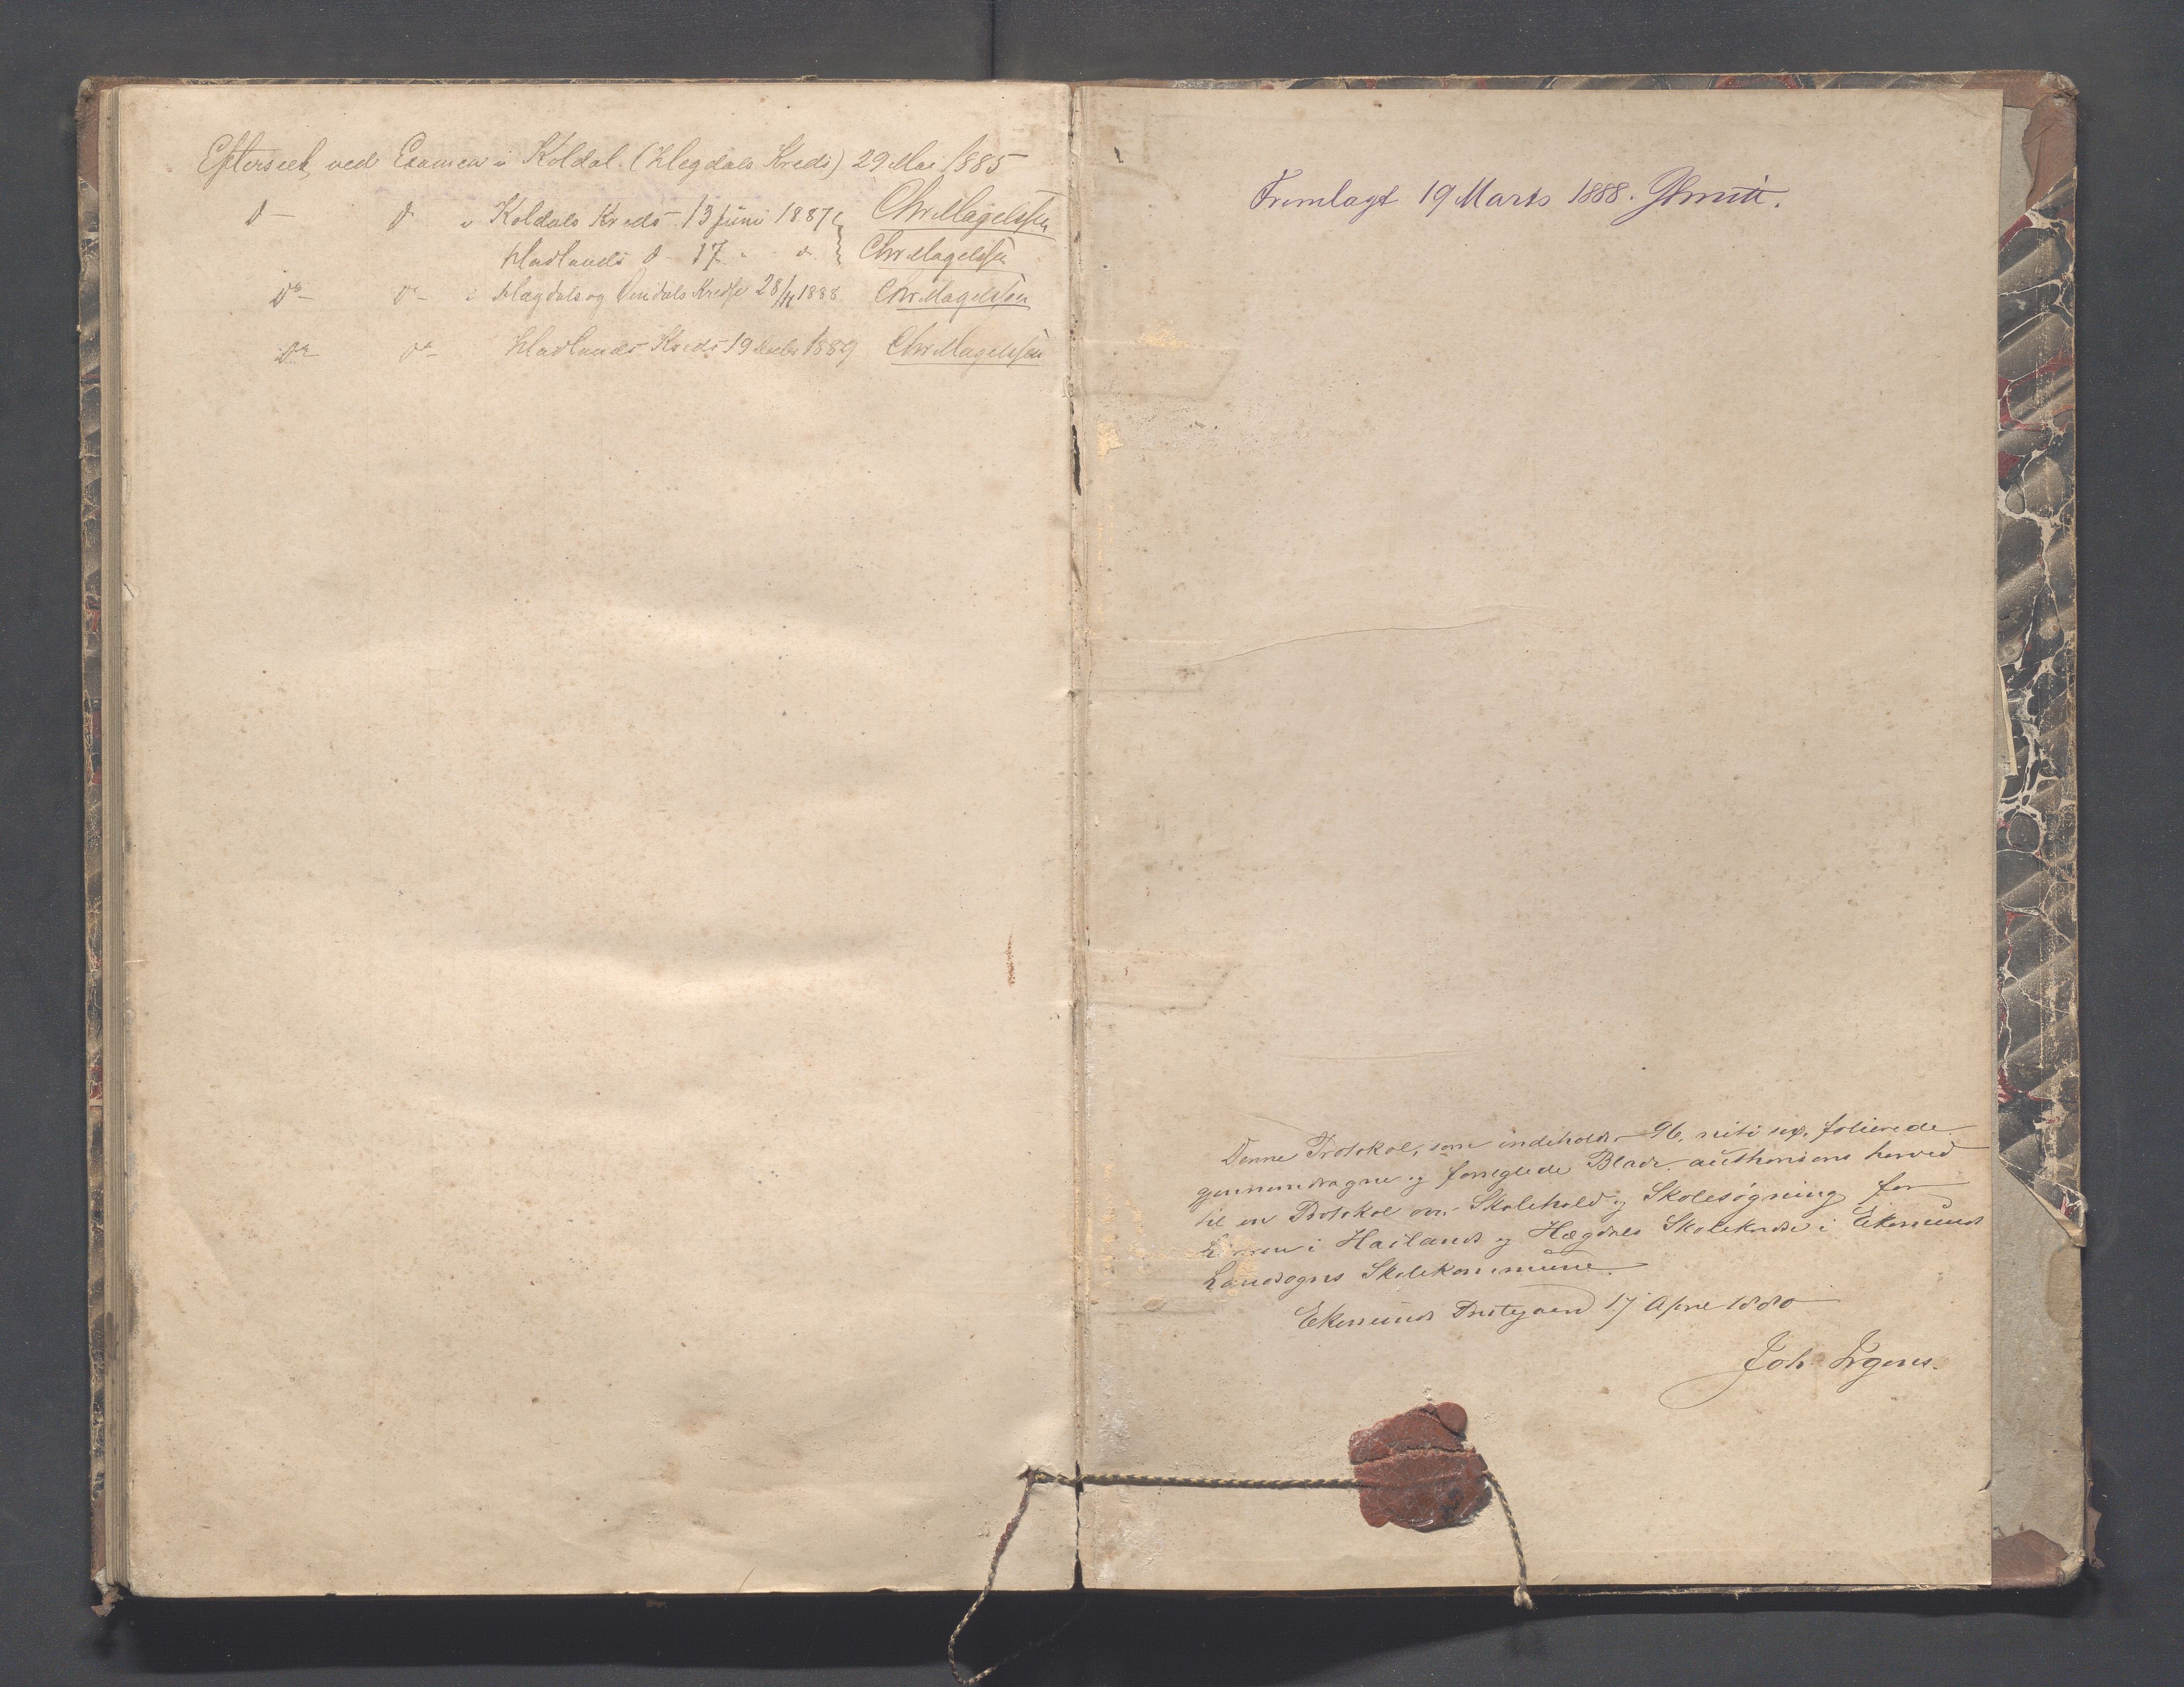 Efterseet ved Examen i Koldal. (Hegdals Kreds) 29 Mai 1885
d - d i Koldals Kreds 13 Juni 1887 Chr Magelssen
Hadlands d - 17 " d. Chr Magelssen
do - do - i Hægdals og Kredse 28/11 1888 Chr Magelssen
do - do - Hadlands Kreds 19 Decbr 1889 Chr Magelssen
Fremlagt 19 Marts 1888.
Denne Protokol, som indeholder 96, niti sex, folierede
gjennemdragne og forseglede Blade, authoriseres herved
til en Protokol over Skolehold og Skolesøgning for
Læreren i Hailands og Hægdals Skolekredse i Ekersunds
Landsogns Skolekommune.
Ekersunds Prestegaard 17 April 1880
Joh. Irgens.